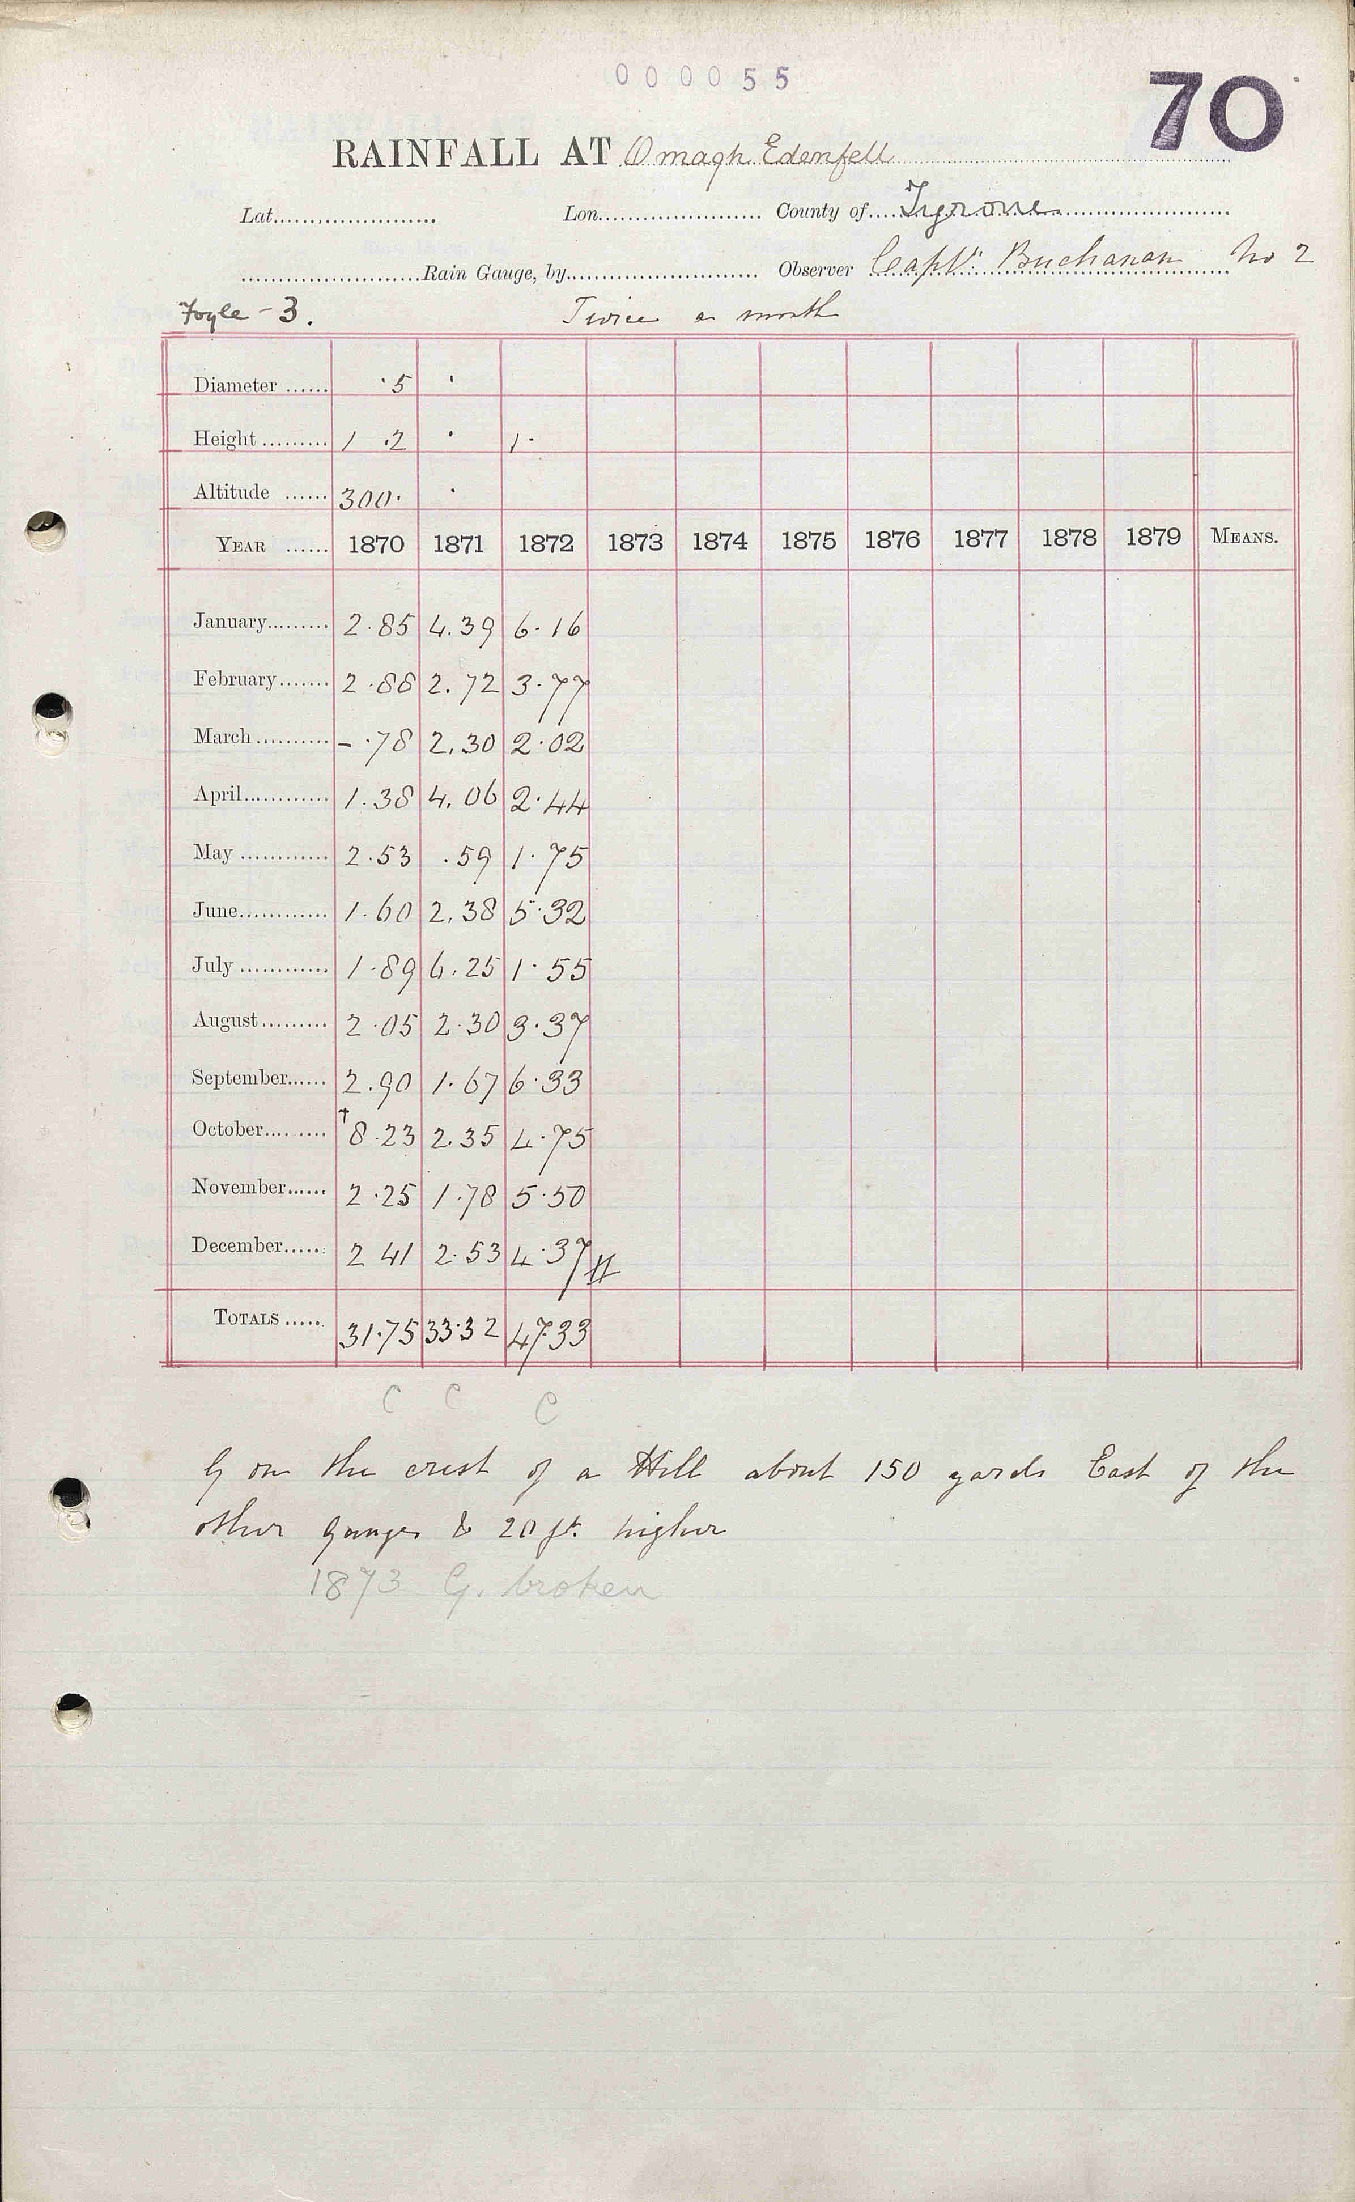 000055
70
RAINFALL AT Omagh Edenfell
Lat...................... Lon...................... County of....Tyrone......................
........................Rain Gauge, by.......................... Observer Capt. Buchanan No 2
Foyle - 3. Twice a month
Diameter ...... .5 .
Height ......... 1 .2 . 1.
Altitude ...... 300. .
YEAR ...... 1870 1871 1872 1873 1874 1875 1876 1877 1878 1879 MEANS.
January......... 2.85 4.39 6.16
February....... 2.88 2.72 3.77
March .......... - .78 2.30 2.02
April............ 1.38 4.06 2.44
May ............ 2.53 .59 1.75
June............ 1.60 2.38 5.32
July ............ 1.89 6.25 1.55
August ......... 2.05 2.30 3.37
September...... 2.90 1.67 6.33
October......... †8.23 2.35 4.75
November...... 2.25 1.78 5.50
December...... 2 41 2.53 4.37
TOTALS ...... 31.75 33.32 47.33
C C C
G on the crest of a Hill about 150 yards East of the
other gauges & 20 ft. higher
1873 G. broken